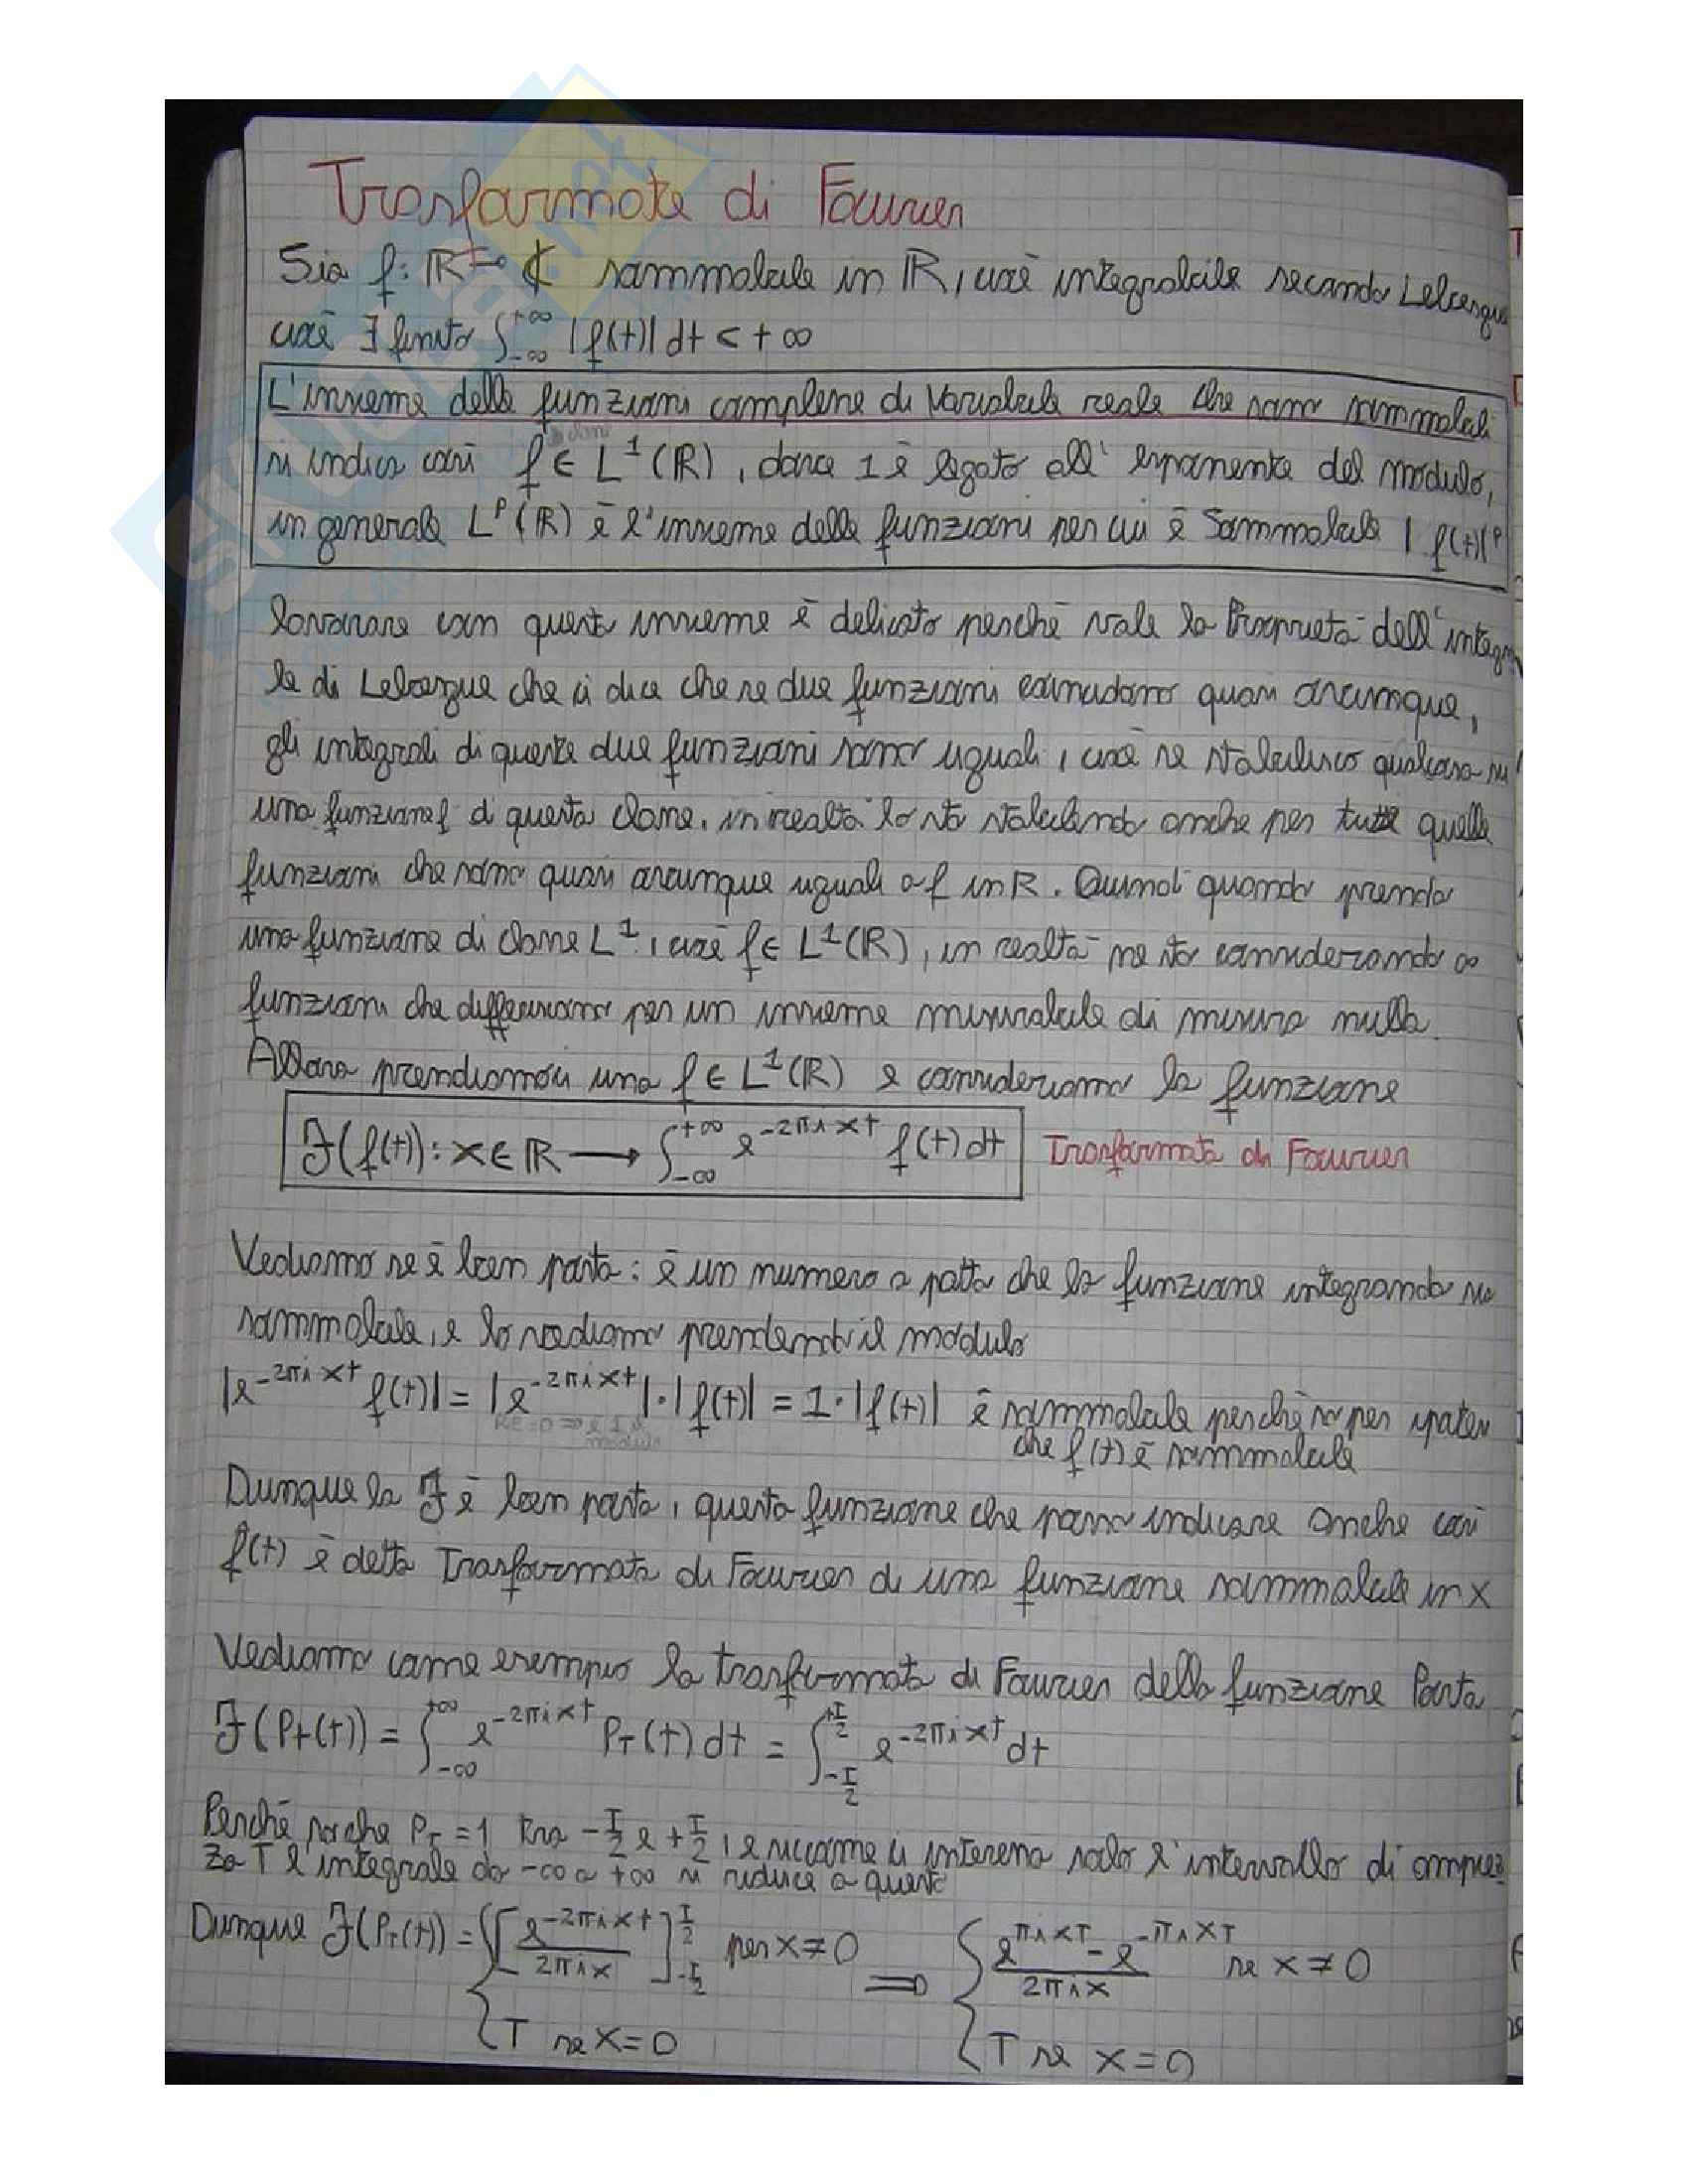 Trasformate di Fourier
Sia f: ℝ → ℂ sommabile in ℝ, cioè integrabile secondo Lebesgue
cioè ∃ finito ∫_{-∞}^{+∞} |f(t)| dt < +∞
L'insieme delle funzioni complesse di variabile reale che sono sommabili
si indica così f ∈ L^1(ℝ), dove 1 è legato all'esponente del modulo,
in generale L^p(ℝ) è l'insieme delle funzioni per cui è sommabile |f(t)|^p
lavorare con questo insieme è delicato perchè vale la Proprietà dell'integra
le di Lebesgue che ci dice che se due funzioni coincidono quasi ovunque,
gli integrali di queste due funzioni sono uguali, cioè se stabilisco qualcosa su
una funzione f di questa classe, in realtà lo sto stabilendo anche per tutte quelle
funzioni che sono quasi ovunque uguali a f in ℝ. Quindi quando prendo
una funzione di classe L^1, cioè f ∈ L^1(ℝ), in realtà ne sto considerando ∞
funzioni che differiscono per un insieme misurabile di misura nulla.
Allora prendiamoci una f ∈ L^1(ℝ) e consideriamo la funzione
ℱ(f(t)): x ∈ ℝ → ∫_{-∞}^{+∞} e^{-2πixt} f(t) dt Trasformata di Fourier
Vediamo se è ben posta: è un numero a patto che la funzione integranda sia
sommabile, e lo vediamo prendendo il modulo
|e^{-2πixt} f(t)| = |e^{-2πixt}|·|f(t)| = 1·|f(t)| è sommabile perchè so per ipotesi
che f(t) è sommabile
Dunque la ℱ è ben posta, questa funzione che posso indicare anche così
f̂(t) è detta Trasformata di Fourier di una funzione sommabile in x
Vediamo come esempio la trasformata di Fourier della funzione Porta
ℱ(P_T(t)) = ∫_{-∞}^{+∞} e^{-2πixt} P_T(t) dt = ∫_{-T/2}^{+T/2} e^{-2πixt} dt
Perchè so che P_T = 1 tra -T/2 e +T/2, e siccome ci interessa solo l'intervallo di ampiez
za T l'integrale da -∞ a +∞ si riduce a questo
Dunque ℱ(P_T(t)) = { [e^{-2πixt}/2πix]_{-T/2}^{T/2} per x ≠ 0 ⇒ { (e^{πixT} - e^{-πixT})/2πix se x ≠ 0
T se x = 0 T se x = 0